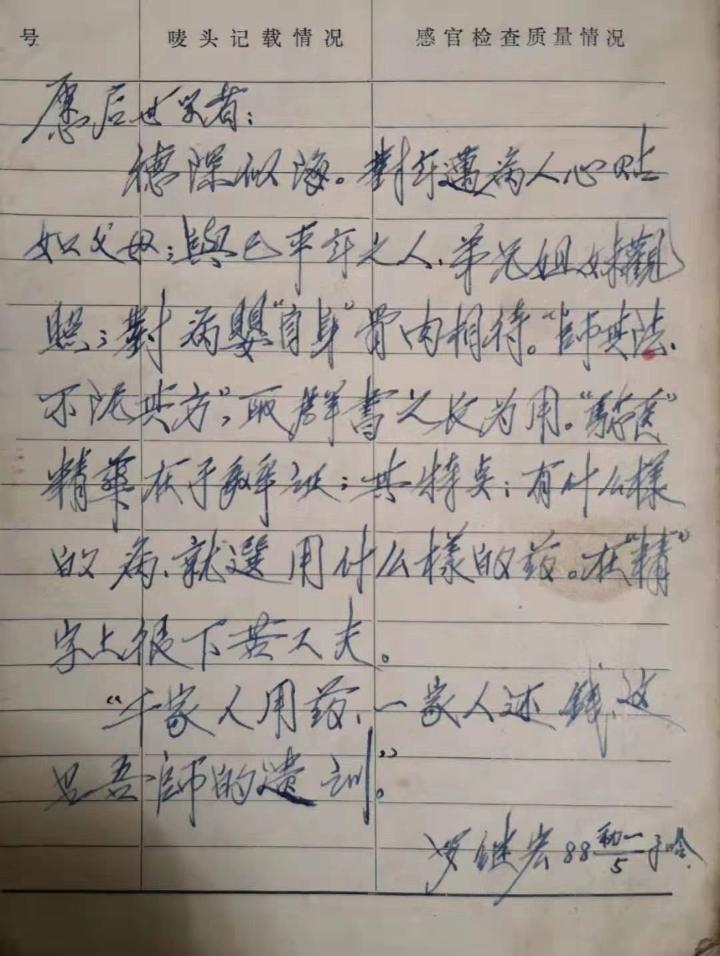 号 唛头记载情况 感官检查质量情况
愿后世学者：
德深似海。對年邁病人心贴
如父母；與己平年之人、弟兄姐妹觀
照；對病嬰“自身”骨肉相待。“師其法、
不泥其方”，取群書之长为用。
精華在于辩证；其特点：有什么樣
的病、就選用什么樣的药。在“精”
字上狠下苦工夫。
“千家人用药、一家人还钱、这
是吾師的遗训”。
罗继宏 88 初一/5 于哈